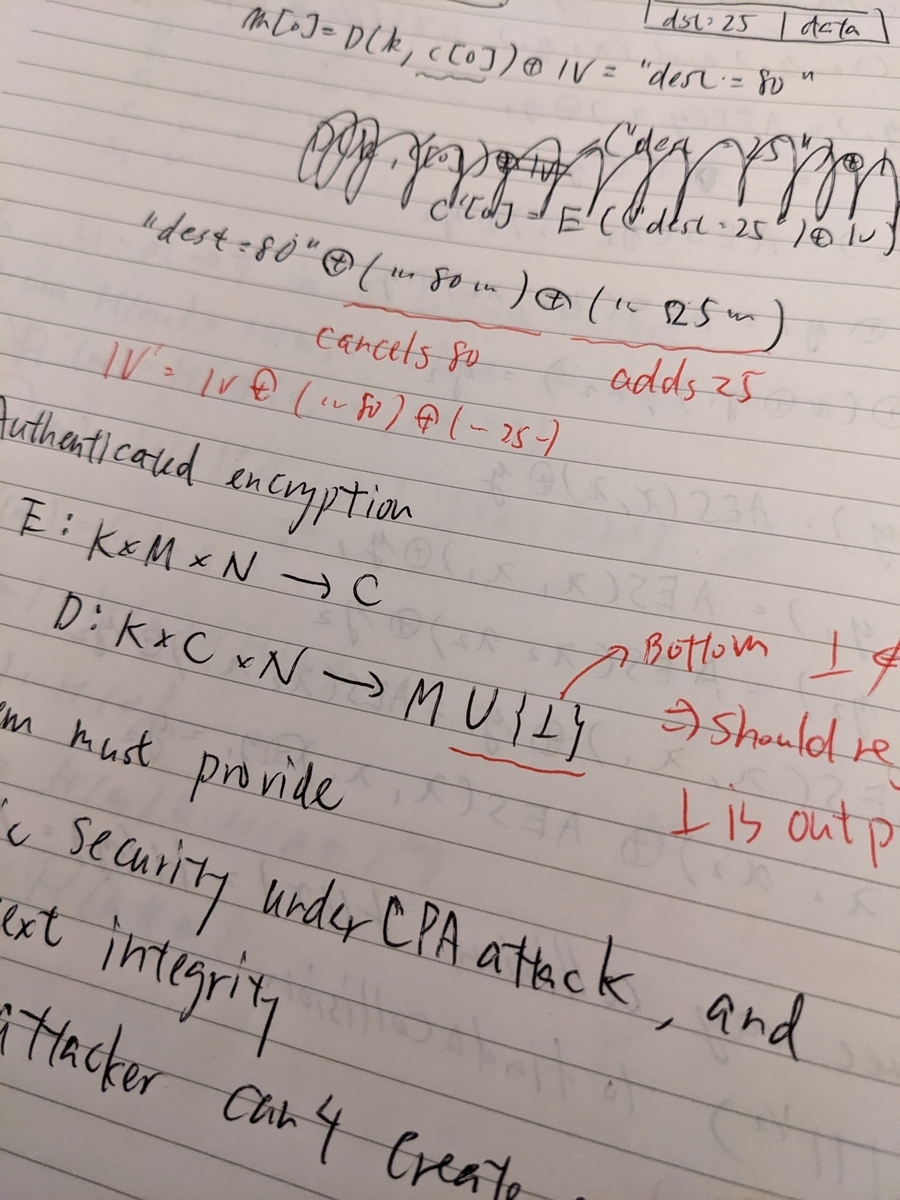 dst: 25 | data
m[0] = D(k, c[0]) ⊕ IV = "dest = 80"
c'[0] = E(("dest = 25") ⊕ IV)
"dest = 80" ⊕ (... 80 ...) ⊕ (... 25 ...)
cancels 80
adds 25
IV' = IV ⊕ (... 80) ⊕ (- 25 -)
Authenticated encryption
E: K × M × N → C
D: K × C × N → M ∪ {⊥}
Bottom ⊥ ∉
⇒ should re
⊥ is outp
em must provide
ic security under CPA attack, and
ext integrity
attacker can
create